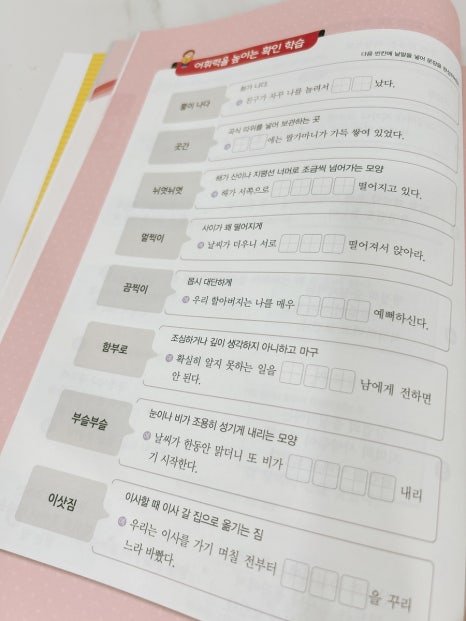 어휘력을 높이는 확인 학습
다음 빈칸에 낱말을 넣어 문장을 완성하세요.
뿔이 나다
화가 나다.
친구가 자꾸 나를 놀려서 났다.
곳간
곡식 따위를 넣어 보관하는 곳
에는 쌀가마니가 가득 쌓여 있었다.
뉘엿뉘엿
해가 산이나 지평선 너머로 조금씩 넘어가는 모양
해가 서쪽으로 떨어지고 있다.
멀찍이
사이가 꽤 떨어지게
날씨가 더우니 서로 떨어져서 앉아라.
끔찍이
몹시 대단하게
우리 할아버지는 나를 매우 예뻐하신다.
함부로
조심하거나 깊이 생각하지 아니하고 마구
확실히 알지 못하는 일을 남에게 전하면
안 된다.
부슬부슬
눈이나 비가 조용히 성기게 내리는 모양
날씨가 한동안 맑더니 또 비가 내리
기 시작한다.
이삿짐
이사할 때 이사 갈 집으로 옮기는 짐
우리는 이사를 가기 며칠 전부터 을 꾸리
느라 바빴다.